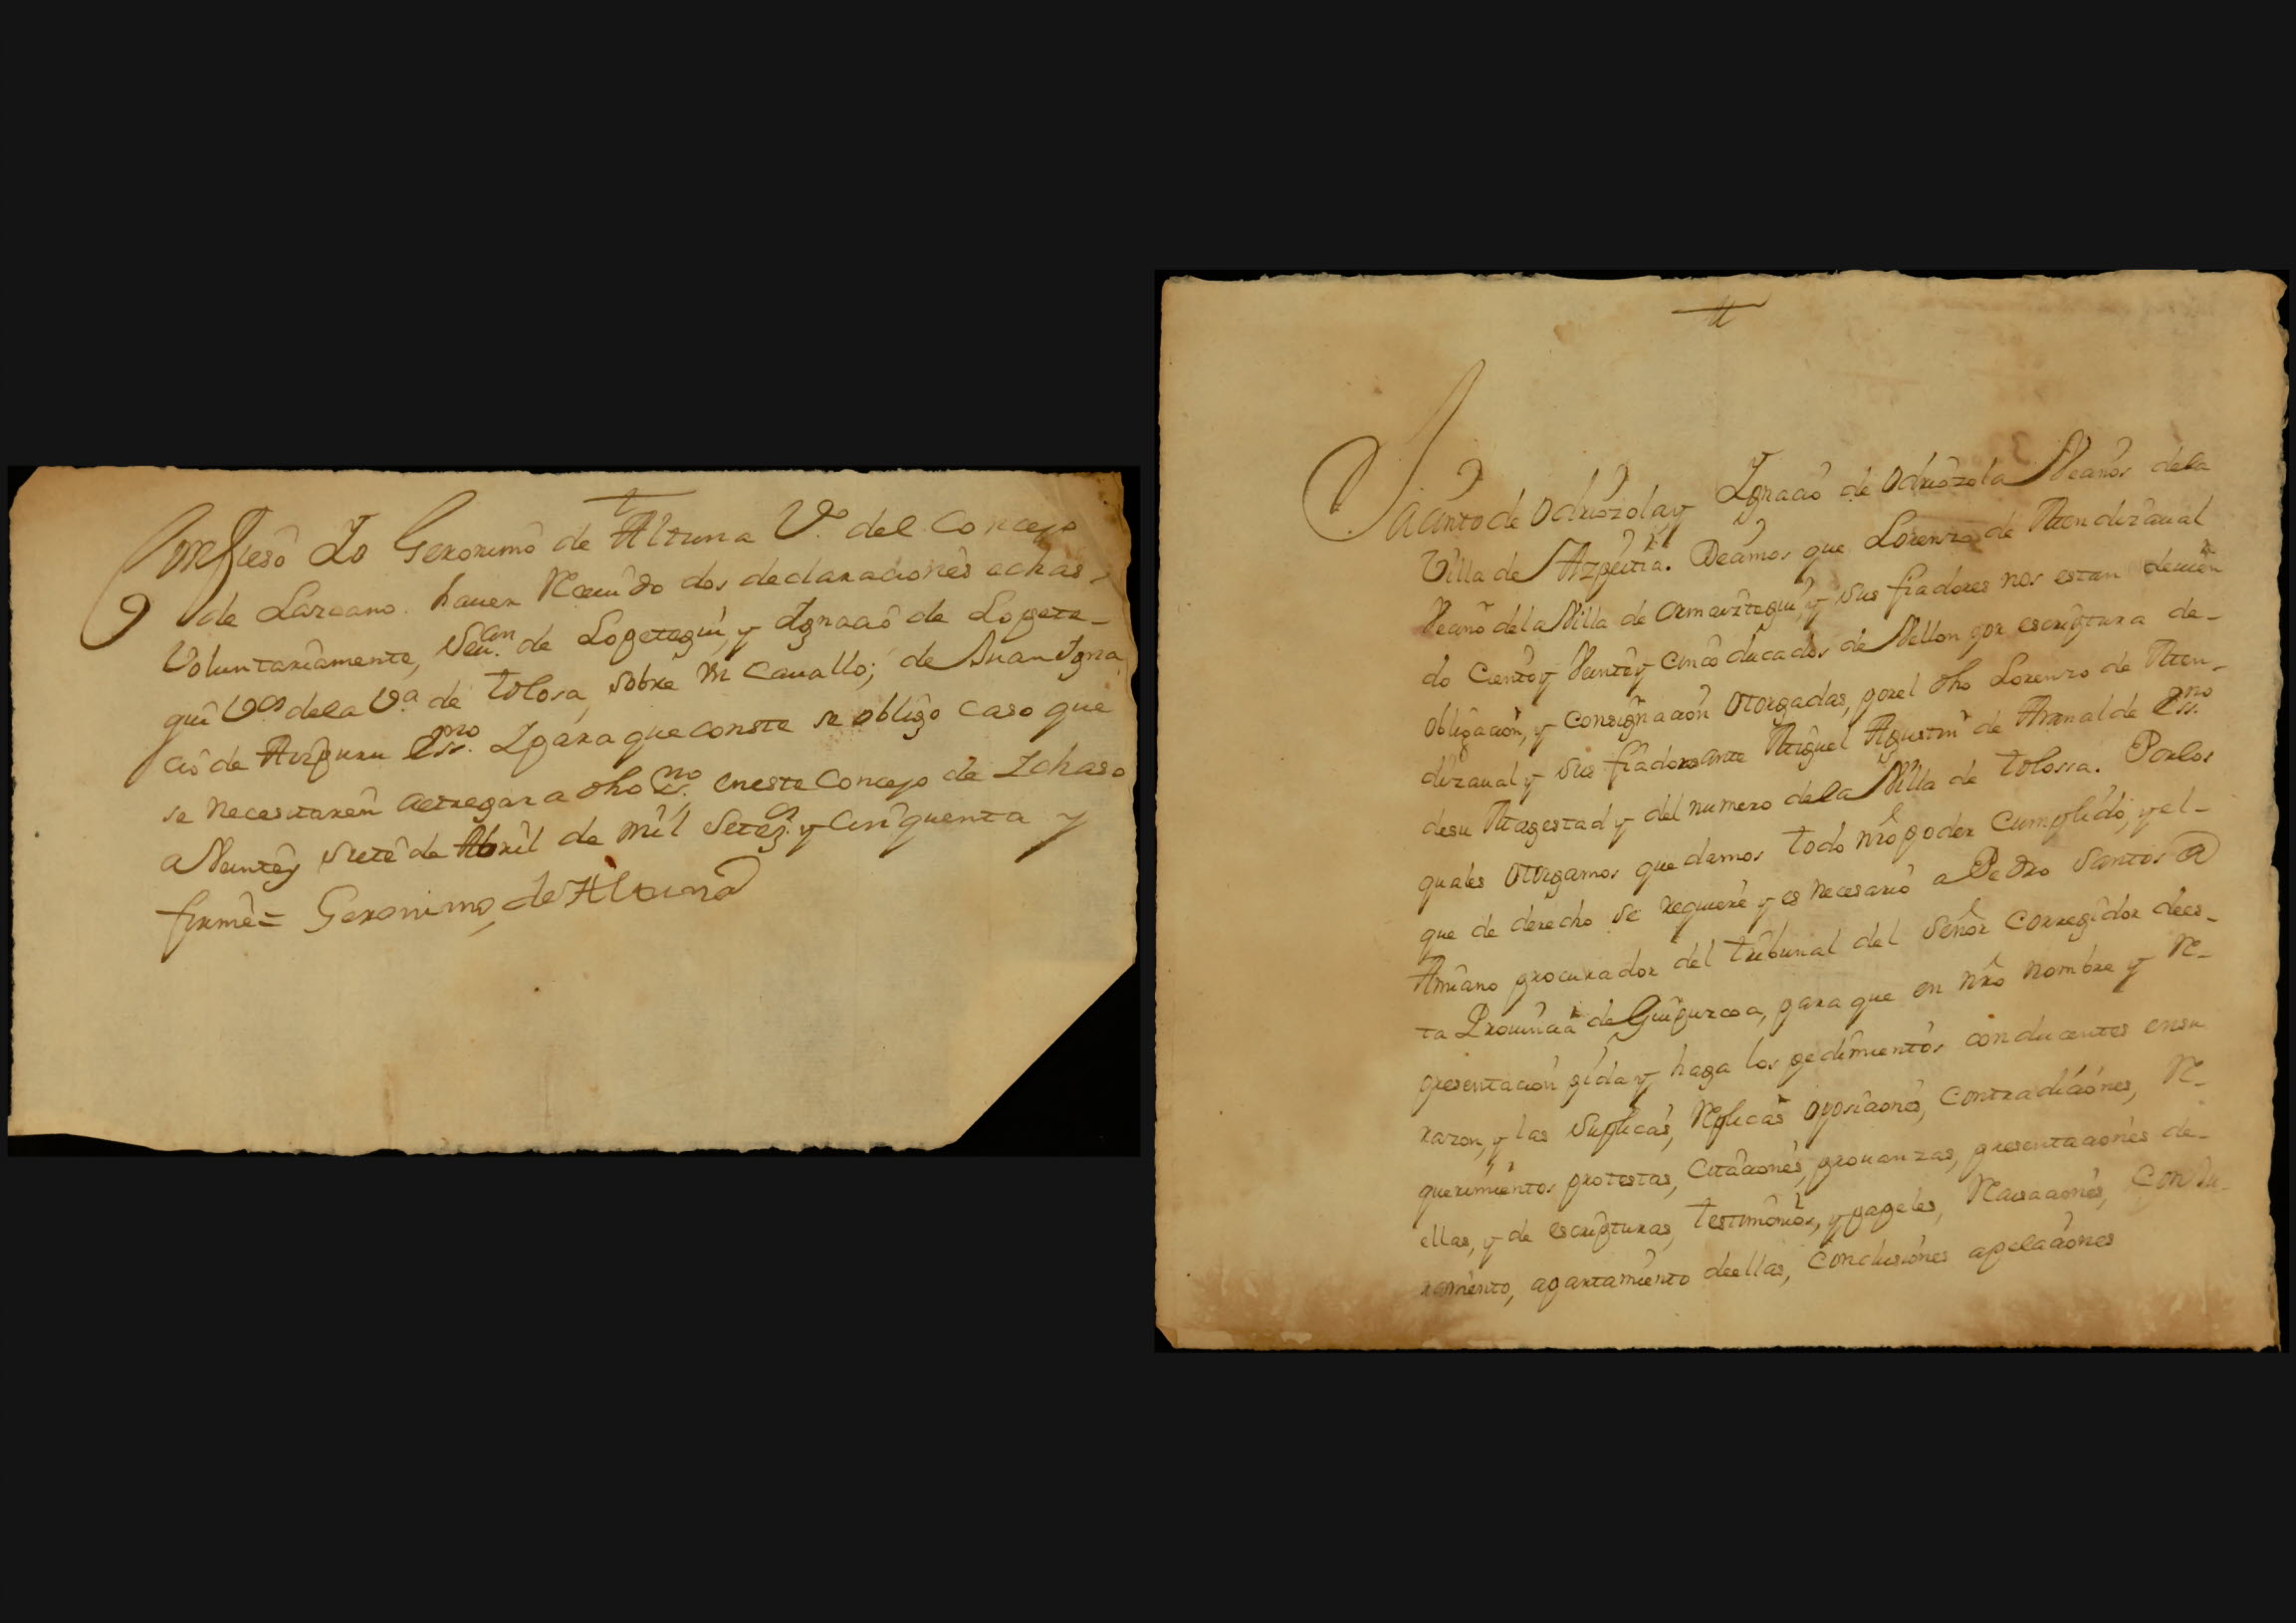 Confieso Yo Geronimo de Altuna V.º del Concejo
de Lazcano. hauer Reciuido dos declaraciones echas
Voluntariamente, Seu.an de Lopetegui, y Ygnacio de Lopete-
gui V.os dela V.a de Tolosa, sobre Vn Cauallo; de Juan Ygna
cio de Aizpuru Ess.no Y para que conste se obligo caso que
se necesitaren aetregar a dho Es.no eneste Concejo de Ichaso
a Veintey siete de Abril de mil Setez.s y Cinquenta y
firmé = Geronimo de Altuna
Jacinto de Odriozola y Ygnacio de Odriozola Vecinos dela
Villa de Azpeitia. Decimos que Lorenzo de Mendizaual
Vecino dela Villa de Ormaiztegui, y sus fiadores nos estan deuien
do Ciento y Veinte y Cinco ducados de Vellon, por escriptura de-
obligacion, y consignacion otorgadas, por el dho Lorenzo de Men-
dizaual y sus fiadores ante Miguel Agustin de Arnalde Ess.no
desu Magestad y del numero dela Villa de Tolossa. Porlos
quales otorgamos que damos todo nro poder Cumplido, y el-
que de derecho se requiere y es necesario a Pedro Santos
Amiano procurador del tribunal del Señor Corregidor dees-
ta Prouincia de Guipuzcoa, para que en nro nombre y Re-
presentacion pida y haga los pedimientos conducentes ensu
razon, y las Suplicas, Replicas oposiciones, Contradiciones, Re-
querimientos protestas, Citaciones, prouanzas, presentaciones de-
ellas, y de escripturas, testimonios, y papeles, Recusaciones, Conju-
ramento, apartamiento deellas, Conclusiones apelaciones